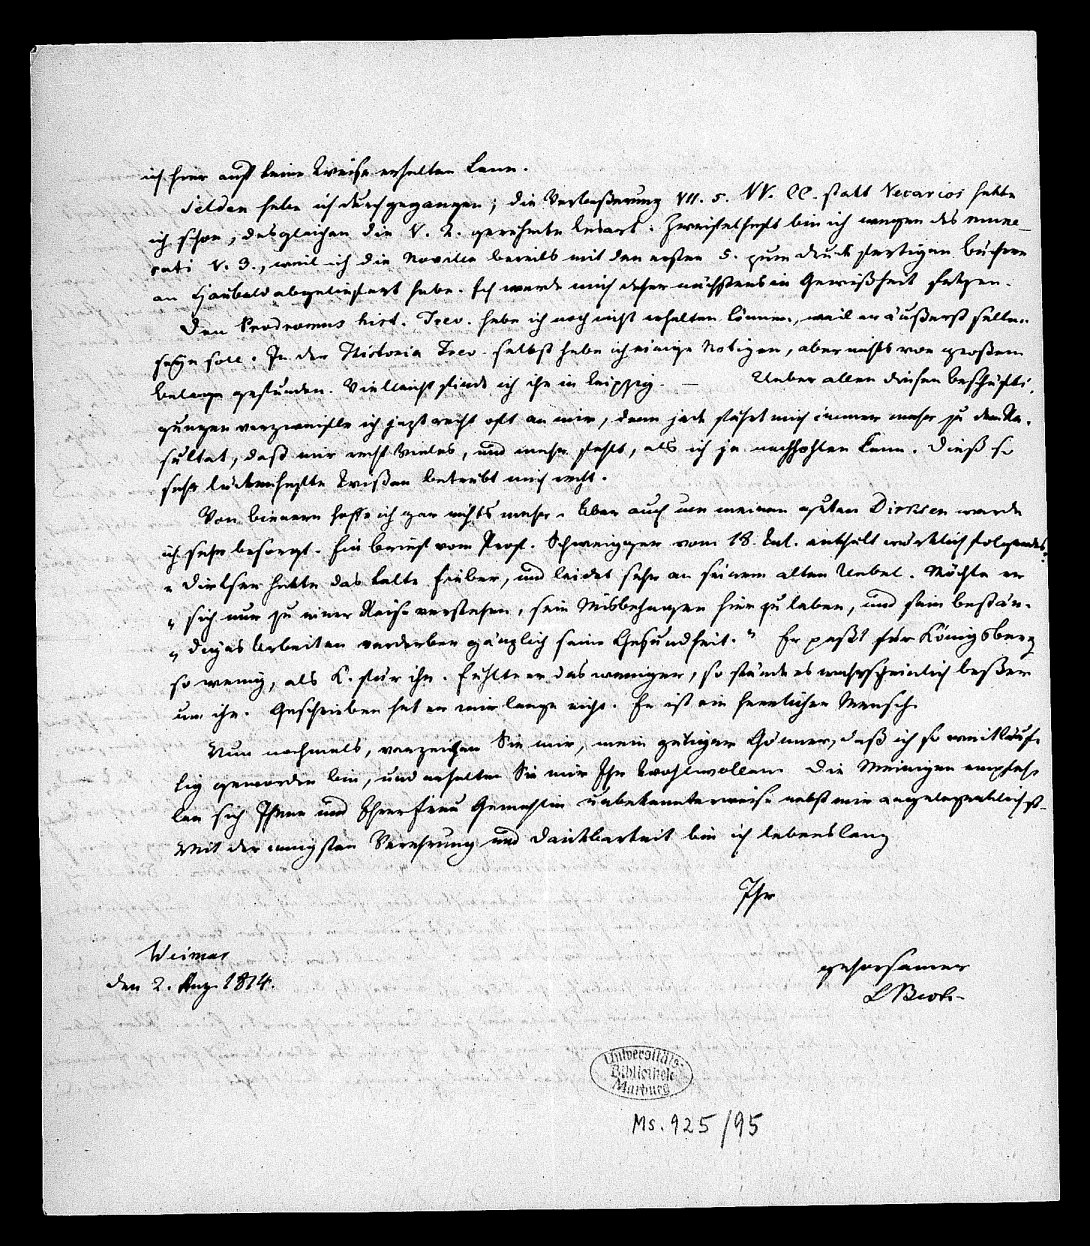 ich hier auf keine Weise erhalten kann.
Selden habe ich durchgegangen; die Verbeßerung VII. 5. VV. CC. statt Vecarios hatte
ich schon, desgleichen die V. 2. gerühmte Lesart. Zweifelhaft bin ich wegen des mune-
rati V. 3., weil ich die Novelle bereits mit den ersten 5. zum Druck fertigen Büchern
an Haubold abgeliefert habe. Ich werde mich daher nächstens in Gewißheit setzen.
Den Prodromus hist. Trev. habe ich noch nicht erhalten können, weil er äußerst selten
seyn soll. In der Historia Trev. selbst habe ich einige Notizen, aber nichts von großem
belange gefunden. Vielleicht finde ich ihn in Leipzig. — Ueber allen diesen beschäfti-
gungen verzweifle ich jezt recht oft an mir, denn jede führt mich immer mehr zu dem Re-
sultat, daß mir recht Vieles, und mehr fehlt, als ich je nachhohlen kann. Dieß so
sehr lückenhafte Wißen betrübt mich recht.
Von bienern hoffe ich gar nichts mehr. Aber auch um meinen guten Dirksen werde
ich sehr besorgt. Ein brief vom Prof. Schweigger vom 18. Jul. enthält wörtlich folgendes:
„Dirksen hatte das kalte Fieber, und leidet sehr an seinem alten Uebel. Möchte er
„sich nur zu einer Reise verstehen, sein Misbehagen hier zu leben, und sein bestän-
„diges Arbeiten verderben gänzlich seine Gesundheit.“ Er paßt für Königsberg
so wenig, als K. für ihn. Fühlte er das weniger, so stünde es wahrscheinlich beßer
um ihn. Geschrieben hat er mir lange nicht. Er ist ein herrlicher Mensch.
Nun nochmals, verzeihen Sie mir, mein gütiger Gönner, daß ich so weitläuf-
tig geworden bin, und erhalten Sie mir Ihr Wohlwollen. Die Meinigen empfeh-
len sich Ihnen und Ihrer Frau Gemahlin unbekannterweise nebst mir angelegentlichst.
Mit der innigsten Verehrung und Dankbarkeit bin ich lebenslang
Ihr
Weimar
den 2. Aug. 1814.
gehorsamer
Universitäts-
Bibliothek
Marburg
Ms. 925/95